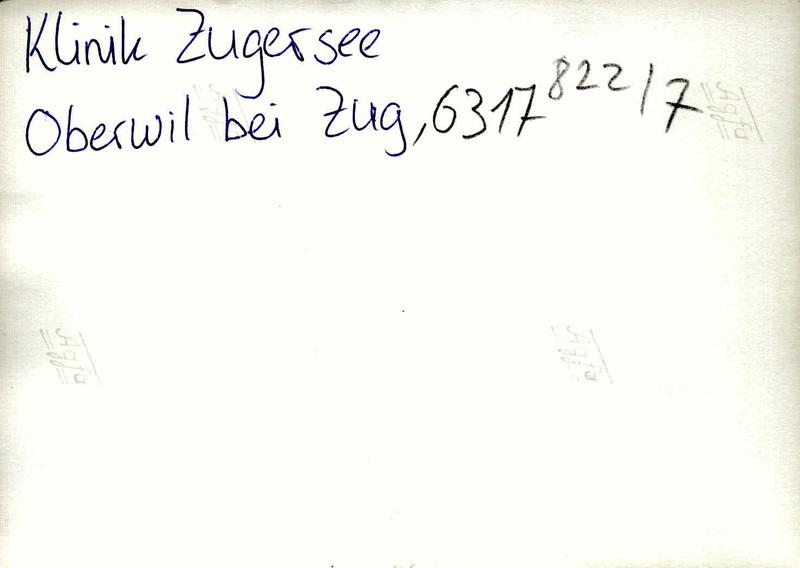 Klinik Zugersee
Oberwil bei Zug, 6317 822/7
Agfa
Agfa
Agfa
Agfa